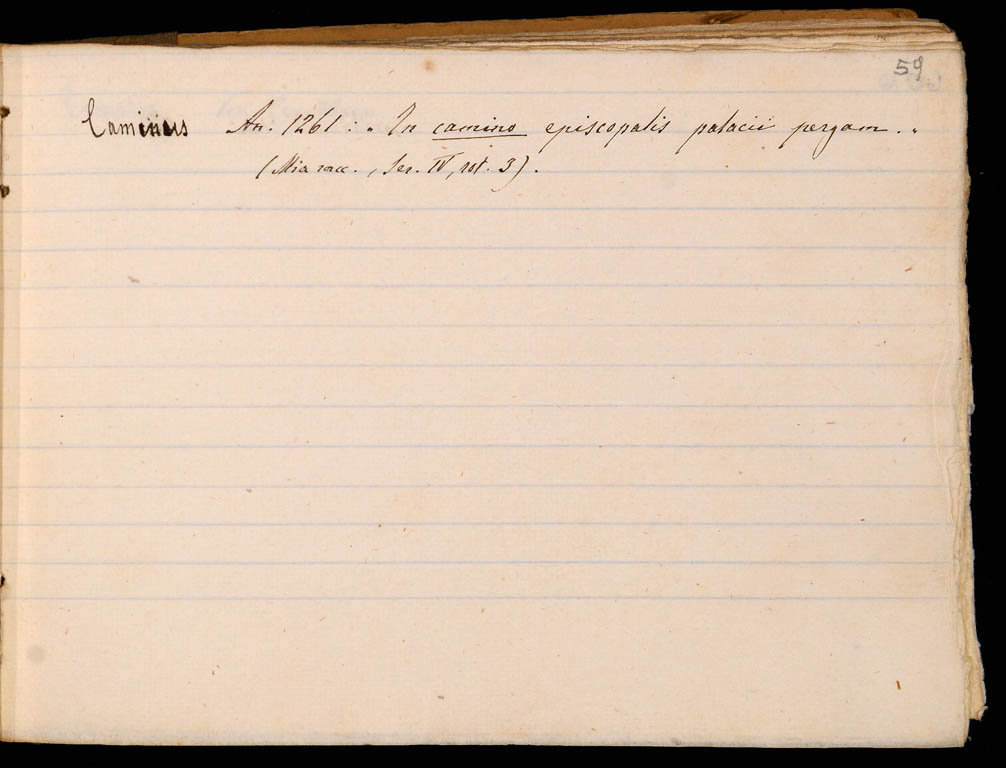 59
Caminus An. 1261 : „ In camino episcopalis palacii pergam . „
( Mia racc. , Ser. IV, rot. 3 ) .